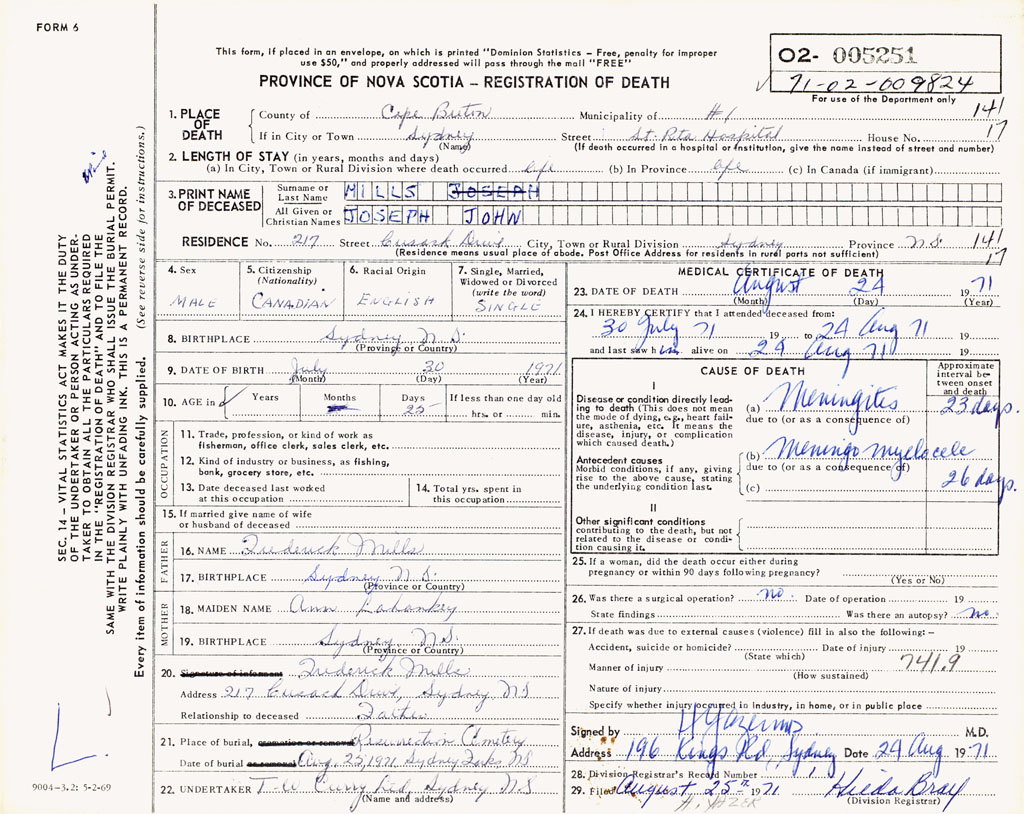 FORM 6
This form, if placed in an envelope, on which is printed "Dominion Statistics – Free, penalty for improper
use $50," and properly addressed will pass through the mail "FREE"
PROVINCE OF NOVA SCOTIA – REGISTRATION OF DEATH
02- 005251
71-02-009824
For use of the Department only
1. PLACE OF DEATH
County of Cape Breton Municipality of #1
141
17
If in City or Town Sydney Street St. Rita Hospital House No.
(Name) (If death occurred in a hospital or institution, give the name instead of street and number)
2. LENGTH OF STAY (in years, months and days)
(a) In City, Town or Rural Division where death occurred life (b) In Province life (c) In Canada (if immigrant)
3. PRINT NAME OF DECEASED
Surname or Last Name MILLS JOSEPH
All Given or Christian Names JOSEPH JOHN
RESIDENCE No. 217 Street Cusack Drive City, Town or Rural Division Sydney Province N.S.
141
17
(Residence means usual place of abode. Post Office Address for residents in rural parts not sufficient)
4. Sex
MALE
5. Citizenship (Nationality)
CANADIAN
6. Racial Origin
ENGLISH
7. Single, Married, Widowed or Divorced (write the word)
SINGLE
8. BIRTHPLACE Sydney N.S.
(Province or Country)
9. DATE OF BIRTH July 30 1971
(Month) (Day) (Year)
10. AGE in Years Months Days 25 If less than one day old
hrs. or min.
OCCUPATION
11. Trade, profession, or kind of work as
fisherman, office clerk, sales clerk, etc.
12. Kind of industry or business, as fishing,
bank, grocery store, etc.
13. Date deceased last worked
at this occupation
14. Total yrs. spent in
this occupation
15. If married give name of wife
or husband of deceased
FATHER
16. NAME Frederick Mills
17. BIRTHPLACE Sydney N.S.
(Province or Country)
MOTHER
18. MAIDEN NAME Ann
19. BIRTHPLACE Sydney N.S.
(Province or Country)
20. Signature of informant Frederick Mills
Address 217 Cusack Drive, Sydney N.S
Relationship to deceased Father
21. Place of burial, cremation or removal Resurrection Cemetery
Date of burial Aug. 25, 1971, Sydney Forks, N.S
22. UNDERTAKER T. W Curry Ltd, Sydney N.S
(Name and address)
MEDICAL CERTIFICATE OF DEATH
23. DATE OF DEATH August 24 1971
(Month) (Day) (Year)
24. I HEREBY CERTIFY that I attended deceased from:
30 July 71 19 to 24 Aug 71 19
and last saw him alive on 24 Aug 71 19
CAUSE OF DEATH
Approximate interval between onset and death
I
Disease or condition directly leading to death (This does not mean the mode of dying, e.g., heart failure, asthenia, etc. It means the disease, injury, or complication which caused death.)
(a) Meningites 23 days.
due to (or as a consequence of)
Antecedent causes
Morbid conditions, if any, giving rise to the above cause, stating the underlying condition last.
(b) Meningo myelocele
due to (or as a consequence of)
26 days.
(c)
II
Other significant conditions
contributing to the death, but not related to the disease or condition causing it.
25. If a woman, did the death occur either during
pregnancy or within 90 days following pregnancy?
(Yes or No)
26. Was there a surgical operation? no. Date of operation 19
State findings Was there an autopsy? no.
27. If death was due to external causes (violence) fill in also the following: –
Accident, suicide or homicide? Date of injury 19
(State which)
741.9
Manner of injury
(How sustained)
Nature of injury
Specify whether injury occurred in Industry, in home, or in public place
Signed by M.D.
Address 196 Kings Rd, Sydney Date 24 Aug 1971
28. Division Registrar's Record Number
29. Filed August 25th 1971 Hilda Bray
(Division Registrar)
H. YAZER
SEC. 14 – VITAL STATISTICS ACT MAKES IT THE DUTY
OF THE UNDERTAKER OR PERSON ACTING AS UNDER-
TAKER TO OBTAIN ALL THE PARTICULARS REQUIRED
IN THE "REGISTRATION OF DEATH" AND TO FILE THE
SAME WITH THE DIVISION REGISTRAR WHO SHALL ISSUE THE BURIAL PERMIT.
WRITE PLAINLY WITH UNFADING INK. THIS IS A PERMANENT RECORD.
Every item of information should be carefully supplied. (See reverse side for instructions.)
9004-3.2: 5-2-69